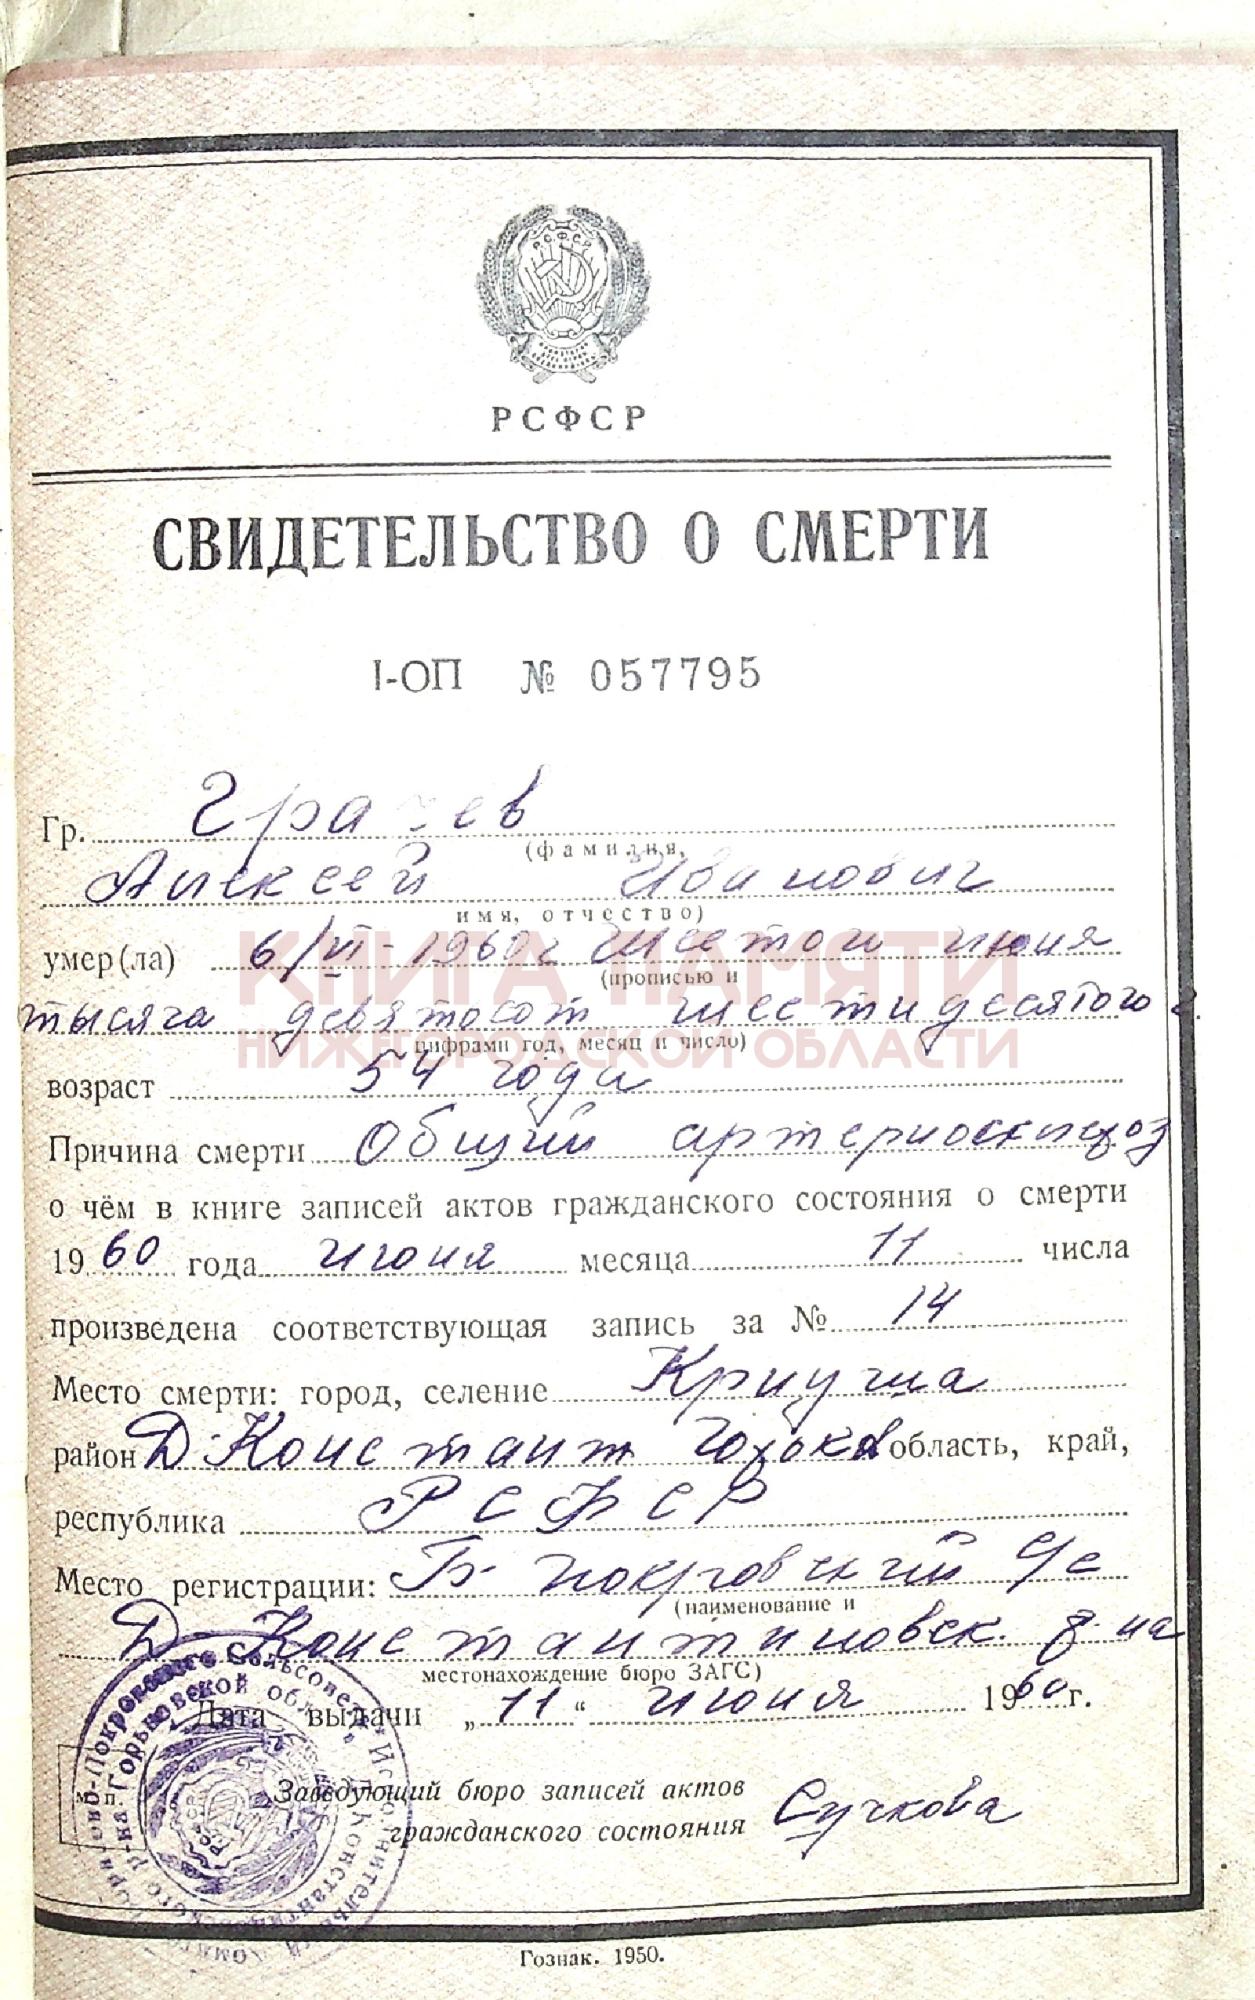 РСФСР
РСФСР
СВИДЕТЕЛЬСТВО О СМЕРТИ
I-ОП № 057795
Гр. Грачев
(фамилия,
Алексей Иванович
имя, отчество)
умер(ла) 6/VI-1960г Шестого июня
(прописью и
тысяча девятосот шестидесятого г.
цифрами год, месяц и число)
КНИГА ПАМЯТИ
НИЖЕГОРОДСКОЙ ОБЛАСТИ
возраст 54 года
Причина смерти Общий артериосклероз
о чём в книге записей актов гражданского состояния о смерти
1960 года июня месяца 11 числа
произведена соответствующая запись за № 14
Место смерти: город, селение Криуша
район Д-Констант Горьков область, край,
республика РСФСР
Место регистрации: Б-Покровский с/с
(наименование и
Д-Константиновск. р-на
местонахождение бюро ЗАГС)
Дата выдачи „11“ июня 1960г.
М. п.
Заведующий бюро записей актов
гражданского состояния Сучкова
Гознак. 1950.